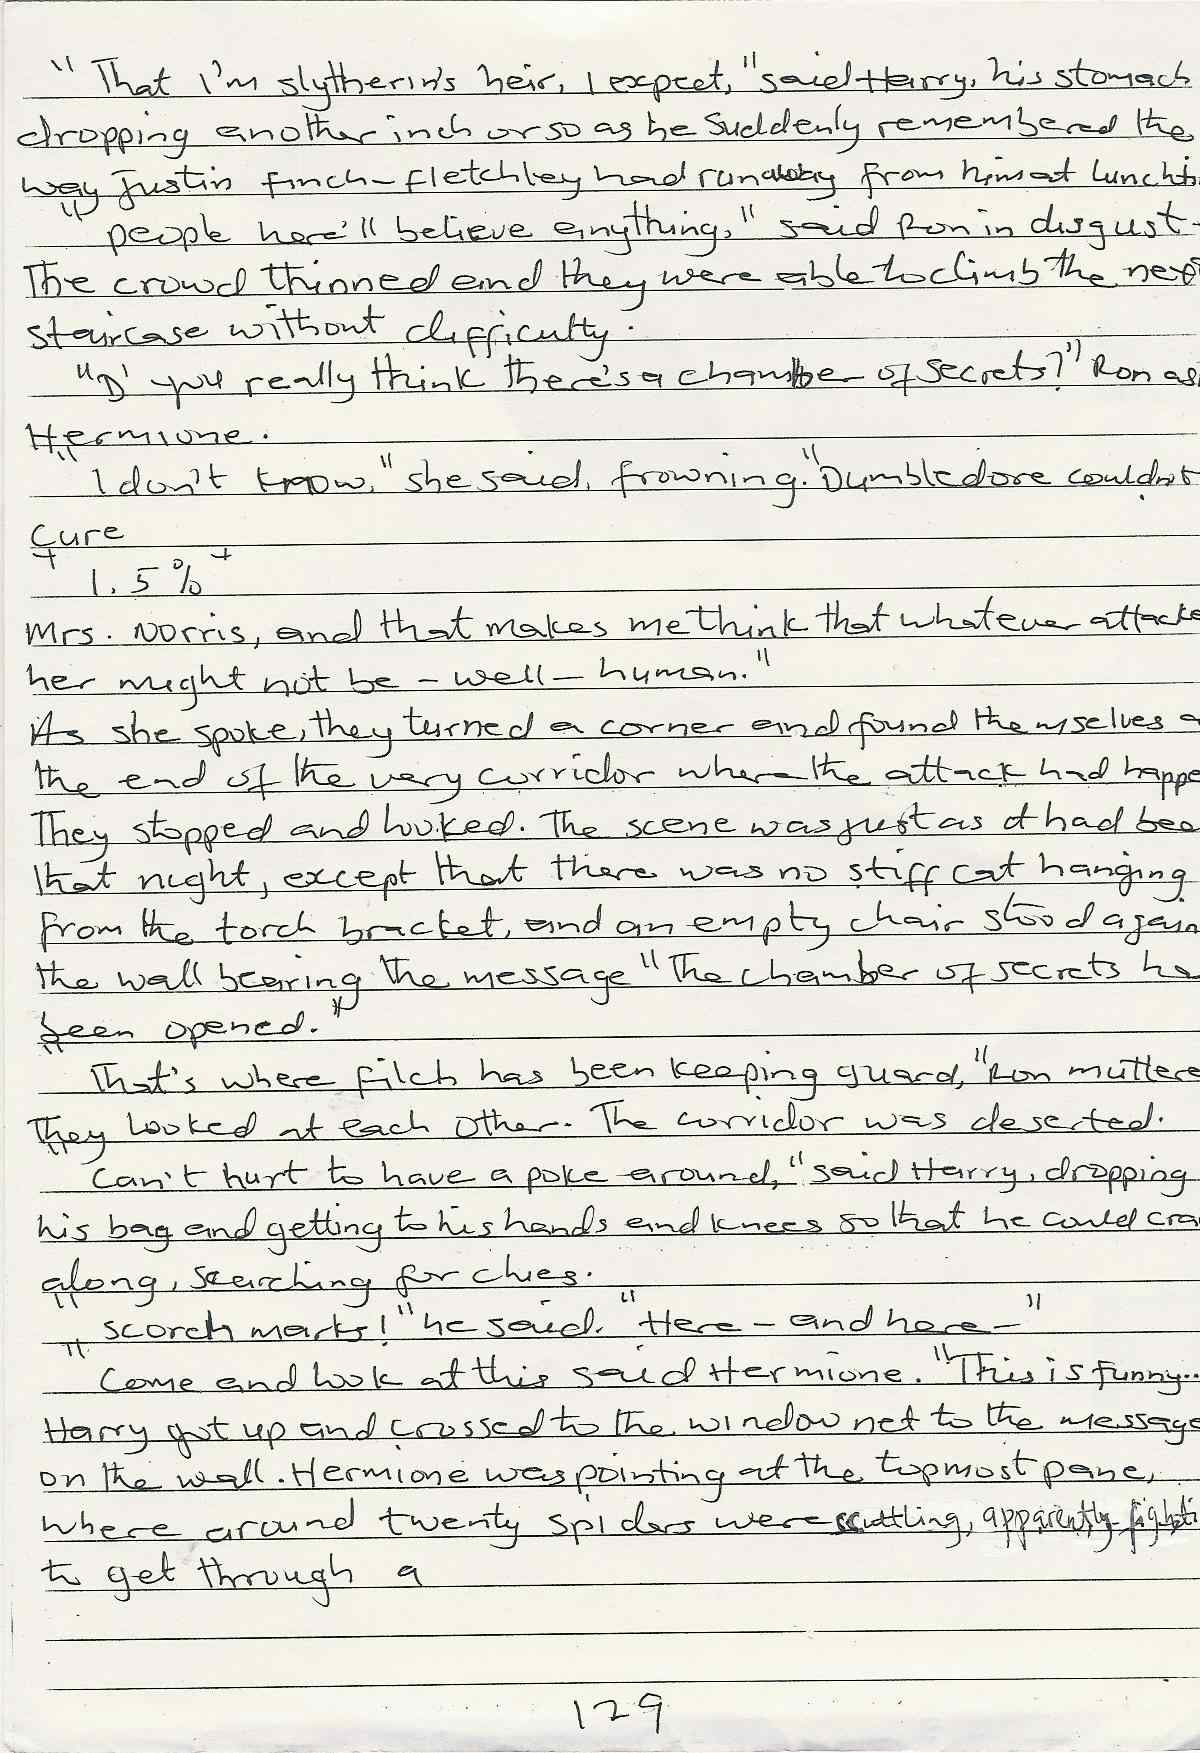 " That I'm slytherin's heir, I expect," said Harry, his stomach
dropping another inch or so as he suddenly remembered the
way Justin finch-fletchley had run away from him at lunchti
" people here'll believe anything," said Ron in disgust.
The crowd thinned and they were able to climb the nex
staircase without difficulty.
"D' you really think there's a chamber of secrets?" Ron as
Hermione.
" I don't know," she said, frowning. "Dumbledore couldn't
cure
+ 1.5% +
Mrs. Norris, and that makes me think that whatever attacke
her might not be - well - human."
As she spoke, they turned a corner and found themselves a
the end of the very corridor where the attack had happe
They stopped and looked. The scene was just as it had bee
that night, except that there was no stiff cat hanging
from the torch bracket, and an empty chair stood again
the wall bearing the message "The chamber of secrets ha
been opened."
" That's where filch has been keeping guard," Ron muttere
They looked at each other. The corridor was deserted.
" Can't hurt to have a poke around," said Harry, dropping
his bag and getting to his hands and knees so that he could cra
along, searching for clues.
" scorch marks!" he said. "Here - and here - "
" Come and look at this said Hermione. "This is funny..
Harry got up and crossed to the window net to the message
on the wall. Hermione was pointing at the topmost pane,
where around twenty spiders were scuttling, apparently fighti
to get through a
129